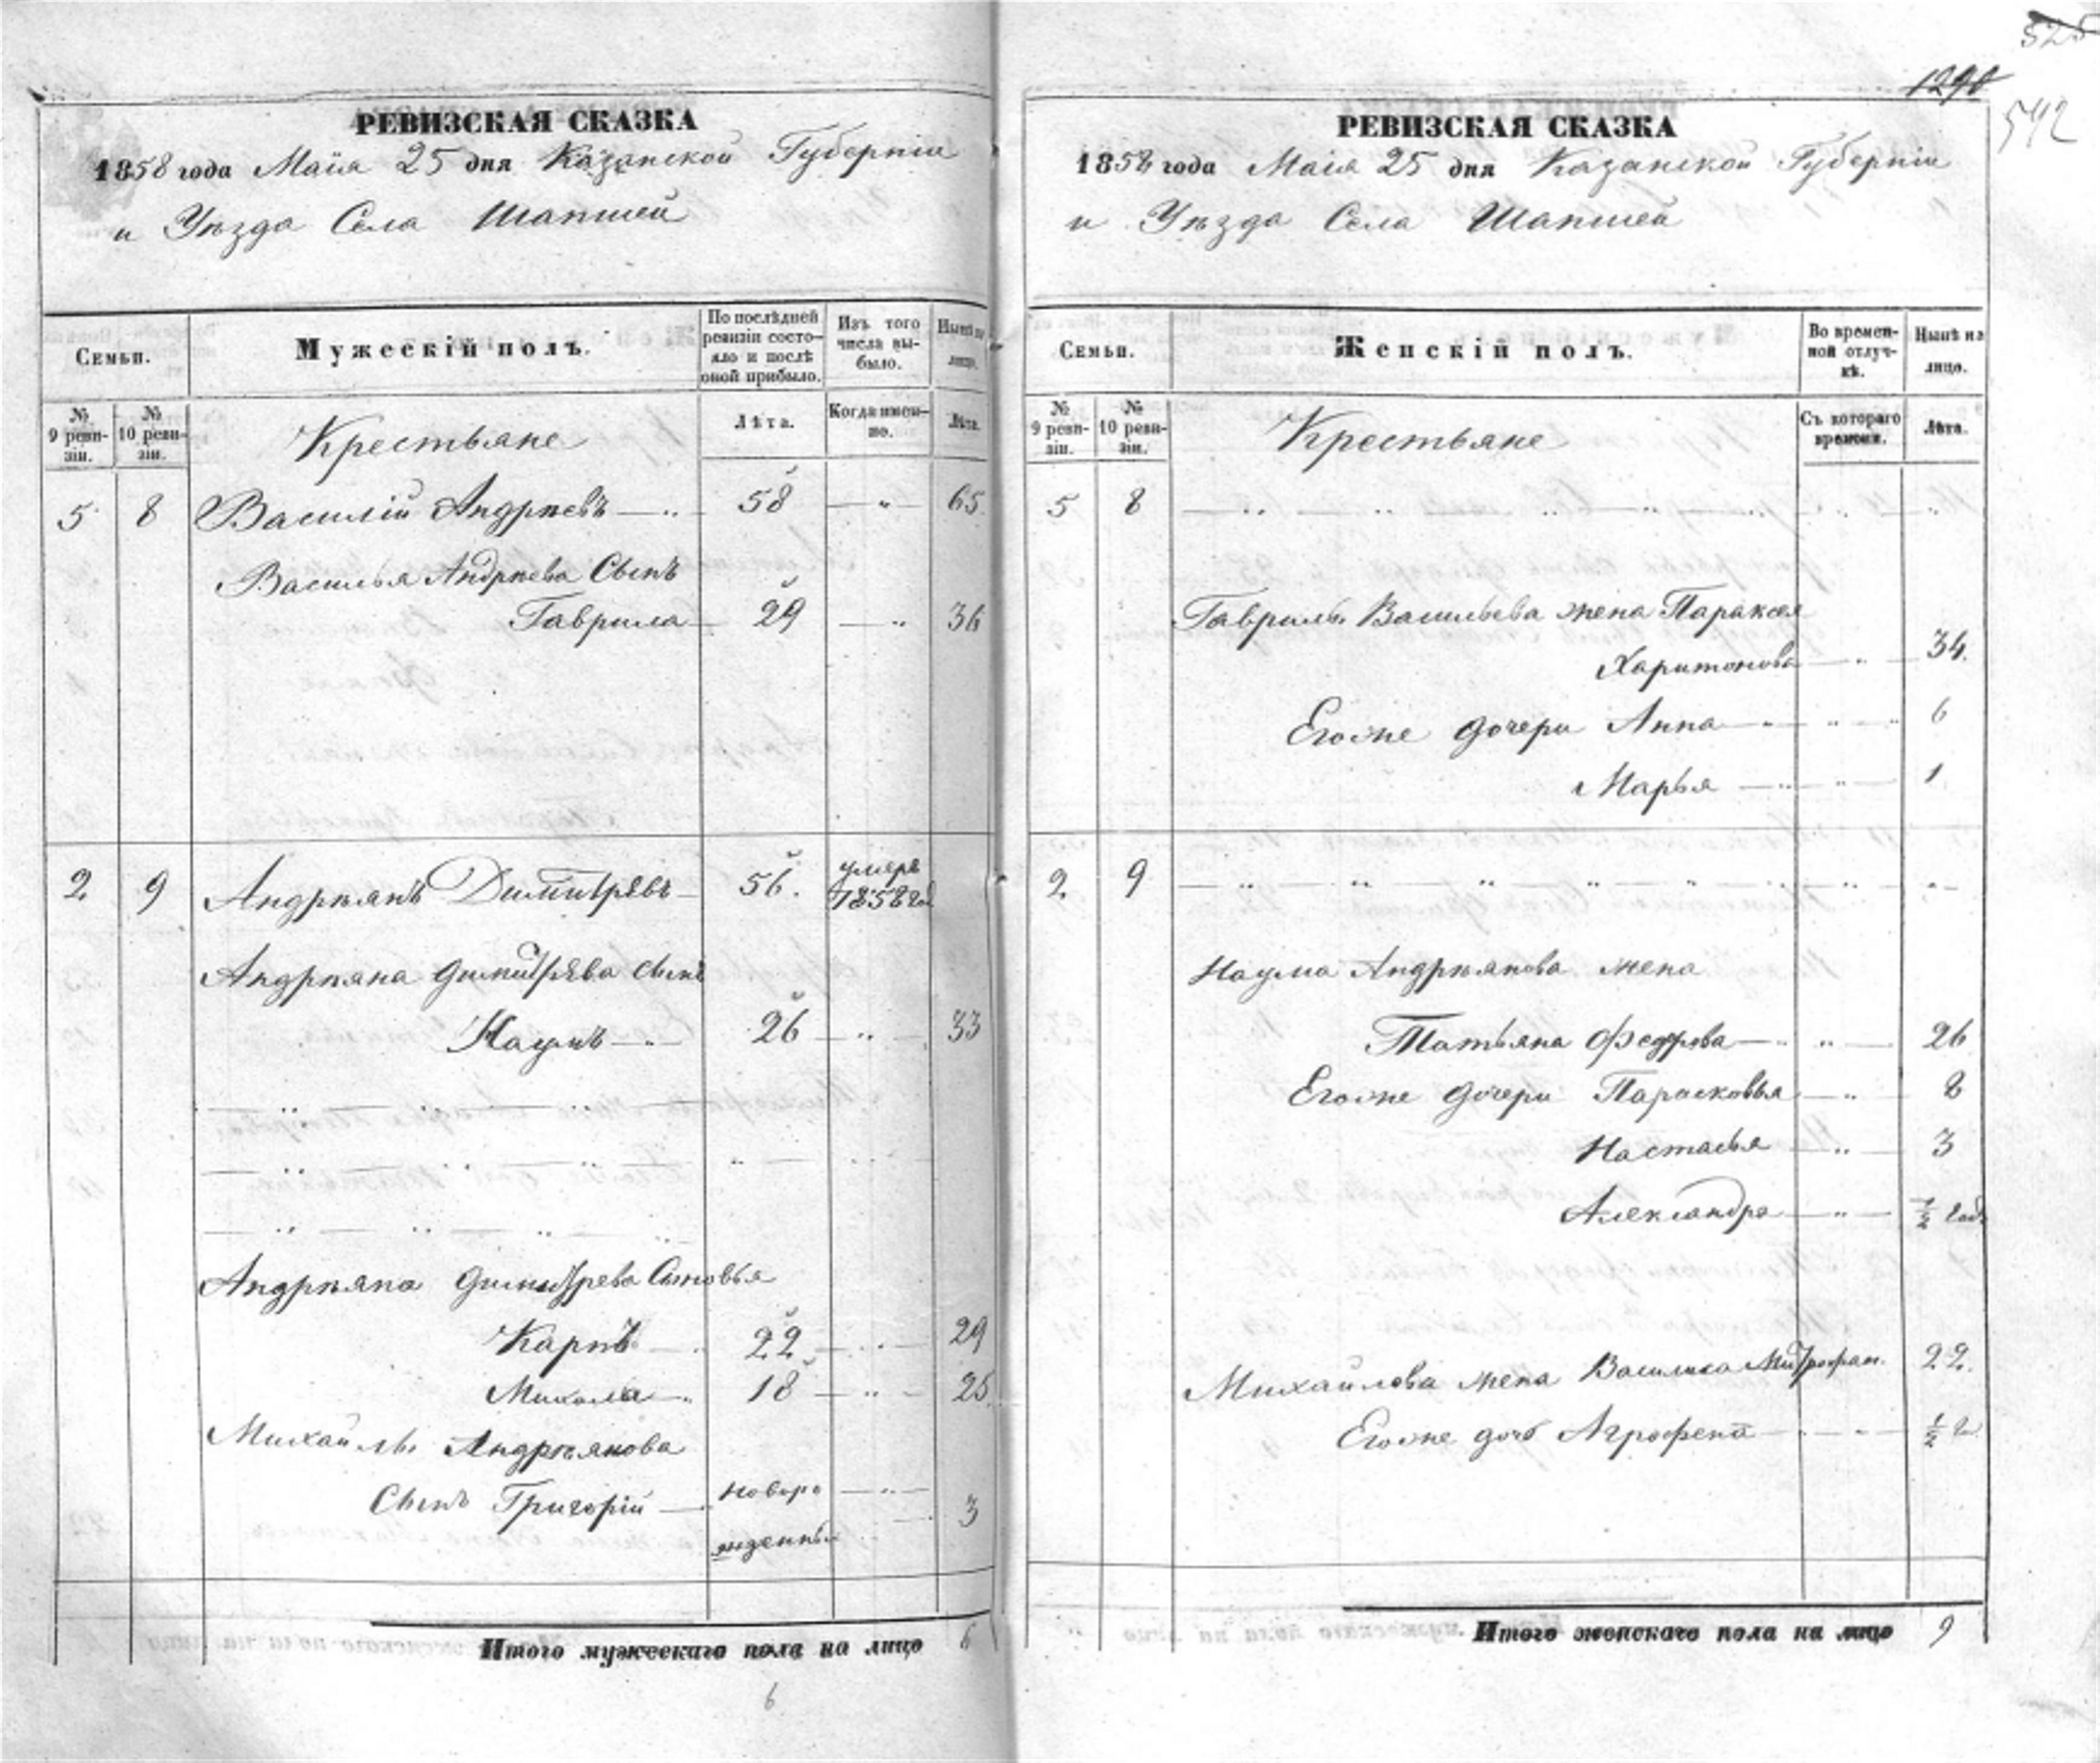 525
1290
542
РЕВИЗСКАЯ СКАЗКА
1858 года Маія 25 дня Казанской Губерніи
и Уѣзда Села Шапшей
Семьи.
Мужескій полъ.
По послѣдней ревизіи состояло и послѣ оной прибыло.
Изъ того числа выбыло.
Нынѣ на лицо.
№ 9 ревизіи.
№ 10 ревизіи.
Крестьяне
Лѣта.
Когда именно.
Лѣта.
5 8 Василій Андрѣевъ 58 65
Василья Андрѣева Сынъ
Гаврила 29 36
2 9 Андрѣянъ Димитрѣвъ 56. умеръ 1858 год
Андрѣяна Димитрѣва сынъ
Наумъ 26 33
Андрѣяна Димитрева Сыновья
Карпъ 22 29
Микола 18 25
Михайлы Андрѣянова
Сынъ Григорій новорожденны 3
Итого мужескаго пола на лицо 6
6
РЕВИЗСКАЯ СКАЗКА
1858 года Маія 25 дня Казанской Губерніи
и Уѣзда Села Шапшей
Семьи.
Женскій полъ.
Во временной отлучкѣ.
Нынѣ на лицо.
№ 9 ревизіи.
№ 10 ревизіи.
Крестьяне
Съ котораго времени.
Лѣта.
5 8
Гаврилы Васильева жена Параксея
Харитонова 34.
Егоже дочери Анна 6
Марья 1
2 9
Наума Андрѣянова жена
Татьяна Федрова 26
Егоже дочери Парасковья 8
Настасья 3
Александра ½ год
Михайлова жена Василиса Митрофан. 22.
Егоже дочь Агрофена ½ г
Итого женскаго пола на лицо 9